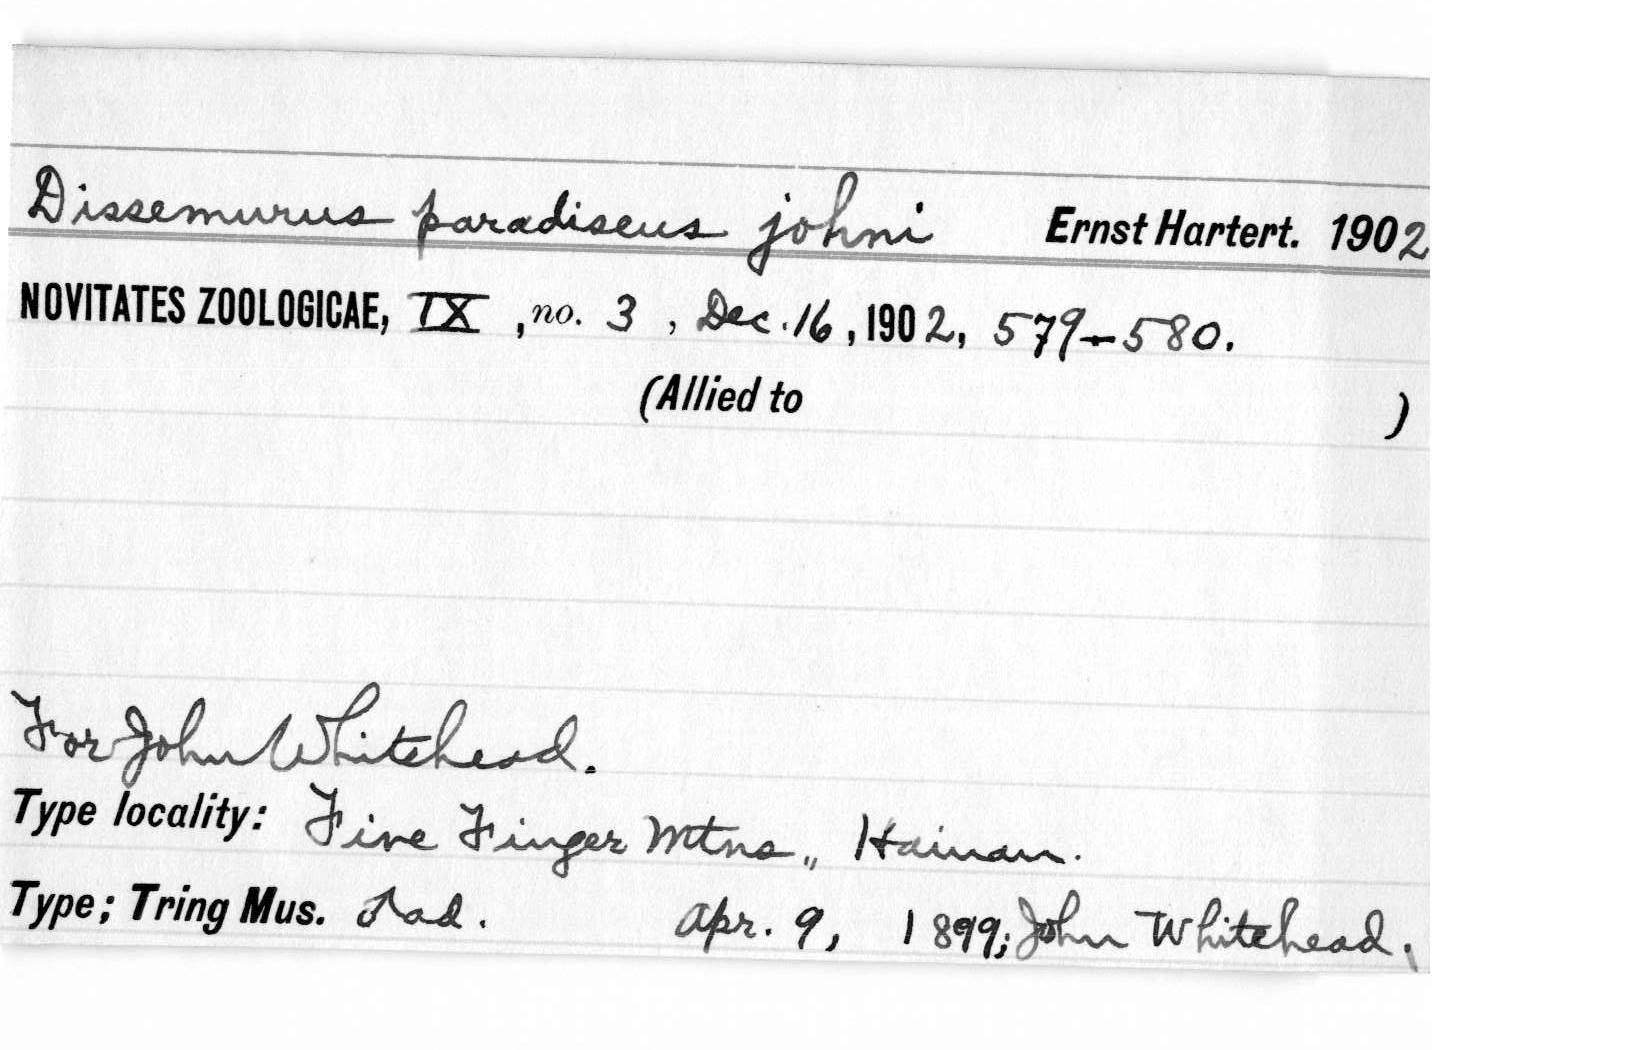 Dissemurus paradiseus johni Ernst Hartert. 1902
NOVITATES ZOOLOGICAE, IX, no. 3, Dec. 16, 1902, 579-580.
(Allied to )
For John Whitehead.
Type locality: Five Finger Mtns., Hainan.
Type; Tring Mus. ad. Apr. 9, 1899; John Whitehead.